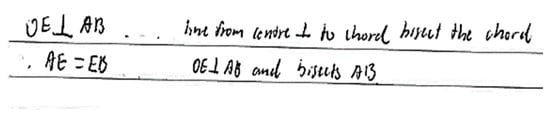 OE⊥ AB . . . line from centre ⊥ to chord bisect the chord
. AE = EB OE⊥ AB and bisects AB